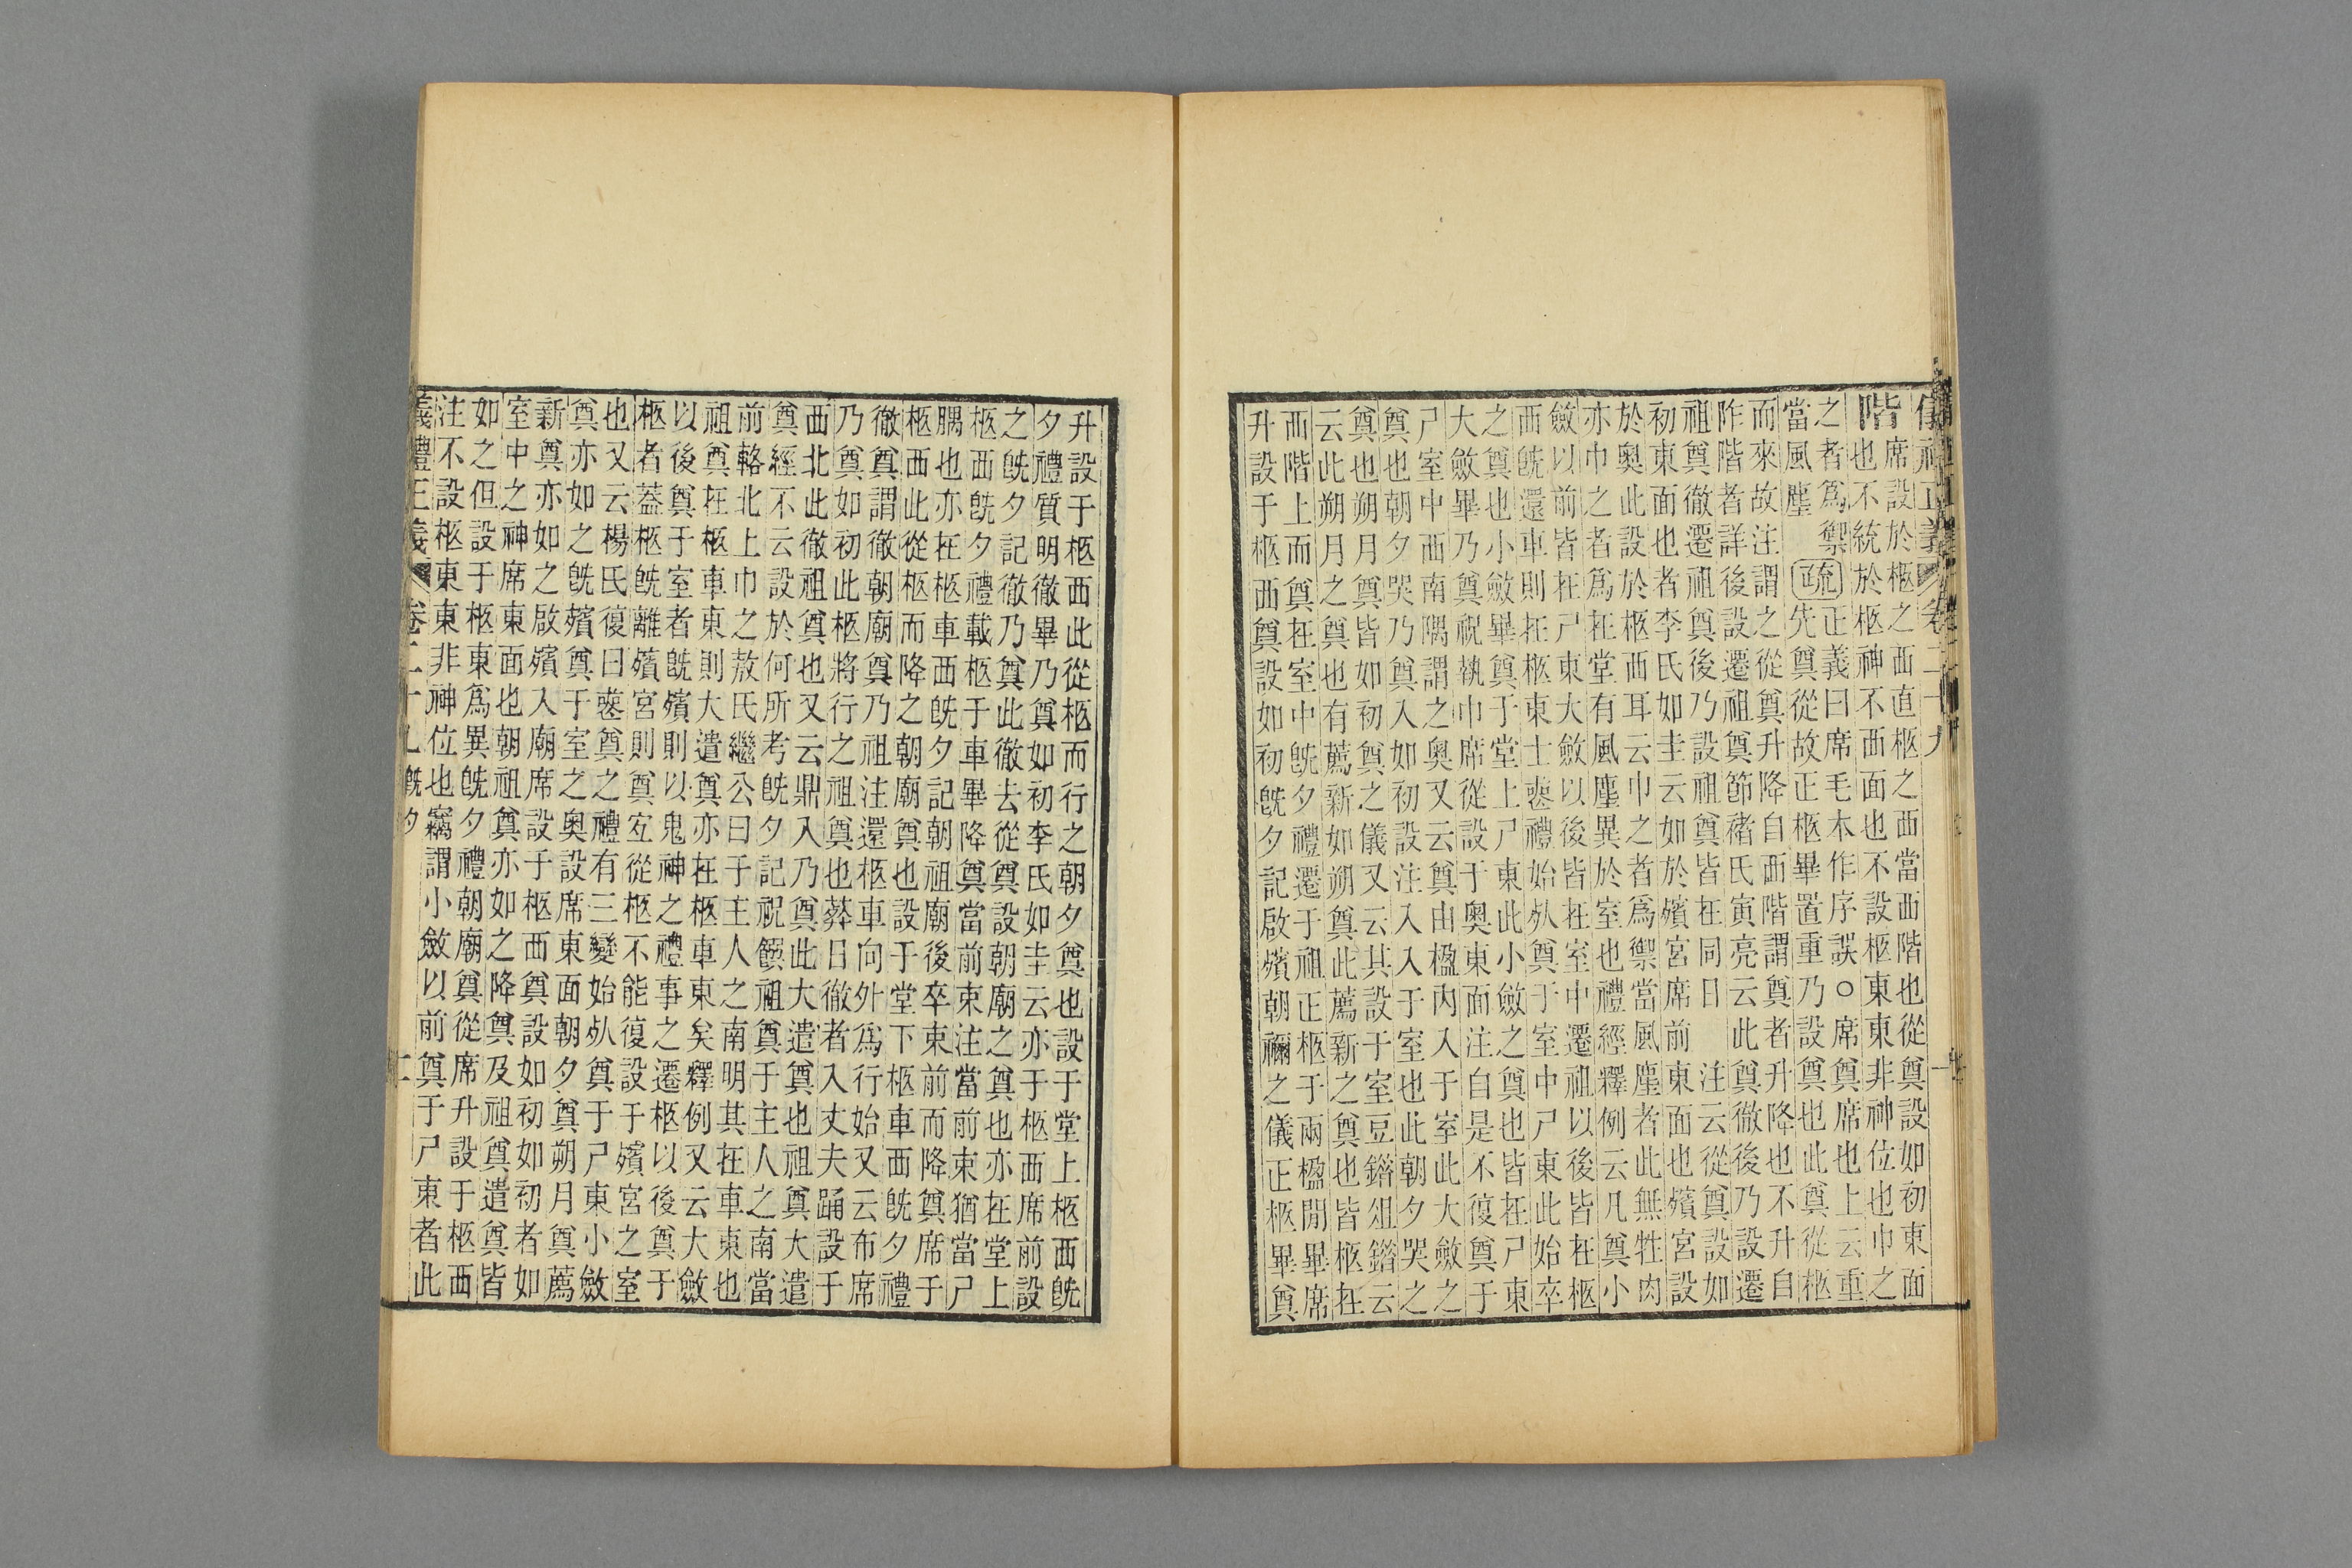 儀禮正義　卷二十九
階
席設於柩之西直柩之西當西階也從奠設如初東面
也不統於柩神不西面也不設柩東東非神位也巾之
之者為禦
當風塵
疏
正義曰席毛本作序誤○席奠席也上云重
先奠從故正柩畢置重乃設奠也此奠從柩
而來故注謂之從奠升降自西階謂奠者升降也不升自
阼階者詳後設遷祖奠節褚氏寅亮云此奠徹後乃設遷
祖奠徹遷祖奠後乃設祖奠皆在同日　注云從奠設如
初東面也者李氏如圭云如於殯宮席前東面也殯宮設
於奧此設於柩西耳云巾之者為禦當風塵者此無牲肉
亦巾之者為在堂有風塵異於室也禮經釋例云凡奠小
斂以前皆在尸東大斂以後皆在室中遷祖以後皆在柩
西旣還車則在柩東士喪禮始𣦸奠于室中尸東此始卒
之奠也小斂畢奠于堂上尸東此小斂之奠也皆在尸東
大斂畢乃奠祝執巾席從設于奧東面注自是不復奠于
尸室中西南隅謂之奧又云奠由楹內入于室此大斂之
奠也朝夕哭乃奠入如初設注入入于室也此朝夕哭之
奠也朔月奠皆如初奠之儀又云其設于室豆錯俎錯云
云此朔月之奠也有薦新如朔奠此薦新之奠也皆柩在
西階上而奠在室中旣夕禮遷于祖正柩于兩楹閒畢席
升設于柩西奠設如初旣夕記啟殯朝禰之儀正柩畢奠
升設于柩西此從柩而行之朝夕奠也設于堂上柩西旣
夕禮質明徹畢乃奠如初李氏如圭云亦于柩西席前設
之旣夕記徹乃奠此徹去從奠設朝廟之奠也亦在堂上
柩西旣夕禮載柩于車畢降奠當前束注當前束猶當尸
腢也亦在柩車西旣夕記朝祖廟後卒束前而降奠席于
柩西此從柩而降之朝廟奠也設于堂下柩車西旣夕禮
徹奠謂徹朝廟奠乃祖注還柩車向外為行始又云布席
乃奠如初此柩將行之祖奠也葬日徹者入丈夫踊設于
西北此徹祖奠也又云鼎入乃奠此大遣奠也祖奠大遣
奠經不云設於何所考旣夕記祝饌祖奠于主人之南當
前輅北上巾之敖氏繼公曰于主人之南明其在車東也
祖奠在柩車東則大遣奠亦在柩車東矣釋例又云大斂
以後奠于室者旣殯則以鬼神之禮事之遷柩以後奠于
柩者蓋柩旣離殯宮則奠宐從柩不能復設于殯宮之室
也又云楊氏復曰喪奠之禮有三變始𣦸奠于尸東小斂
奠亦如之旣殯奠于室之奧設席東面朝夕奠朔月奠薦
新奠亦如之啟殯入廟席設于柩西奠設如初如初者如
室中之神席東面也朝祖奠亦如之降奠及祖奠遣奠皆
如之但設于柩東為異旣夕禮朝廟奠從席升設于柩西
注不設柩東東非神位也竊謂小斂以前奠于尸東者此
儀禮正義　卷二十九　旣夕